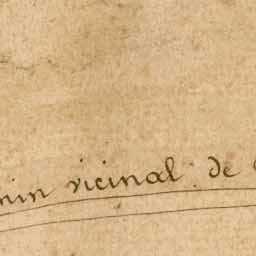 min vicinal de